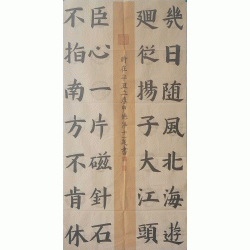 幾日随風北海遊
廻從揚子大江頭
臣心一片磁針石
不指南方不肯休